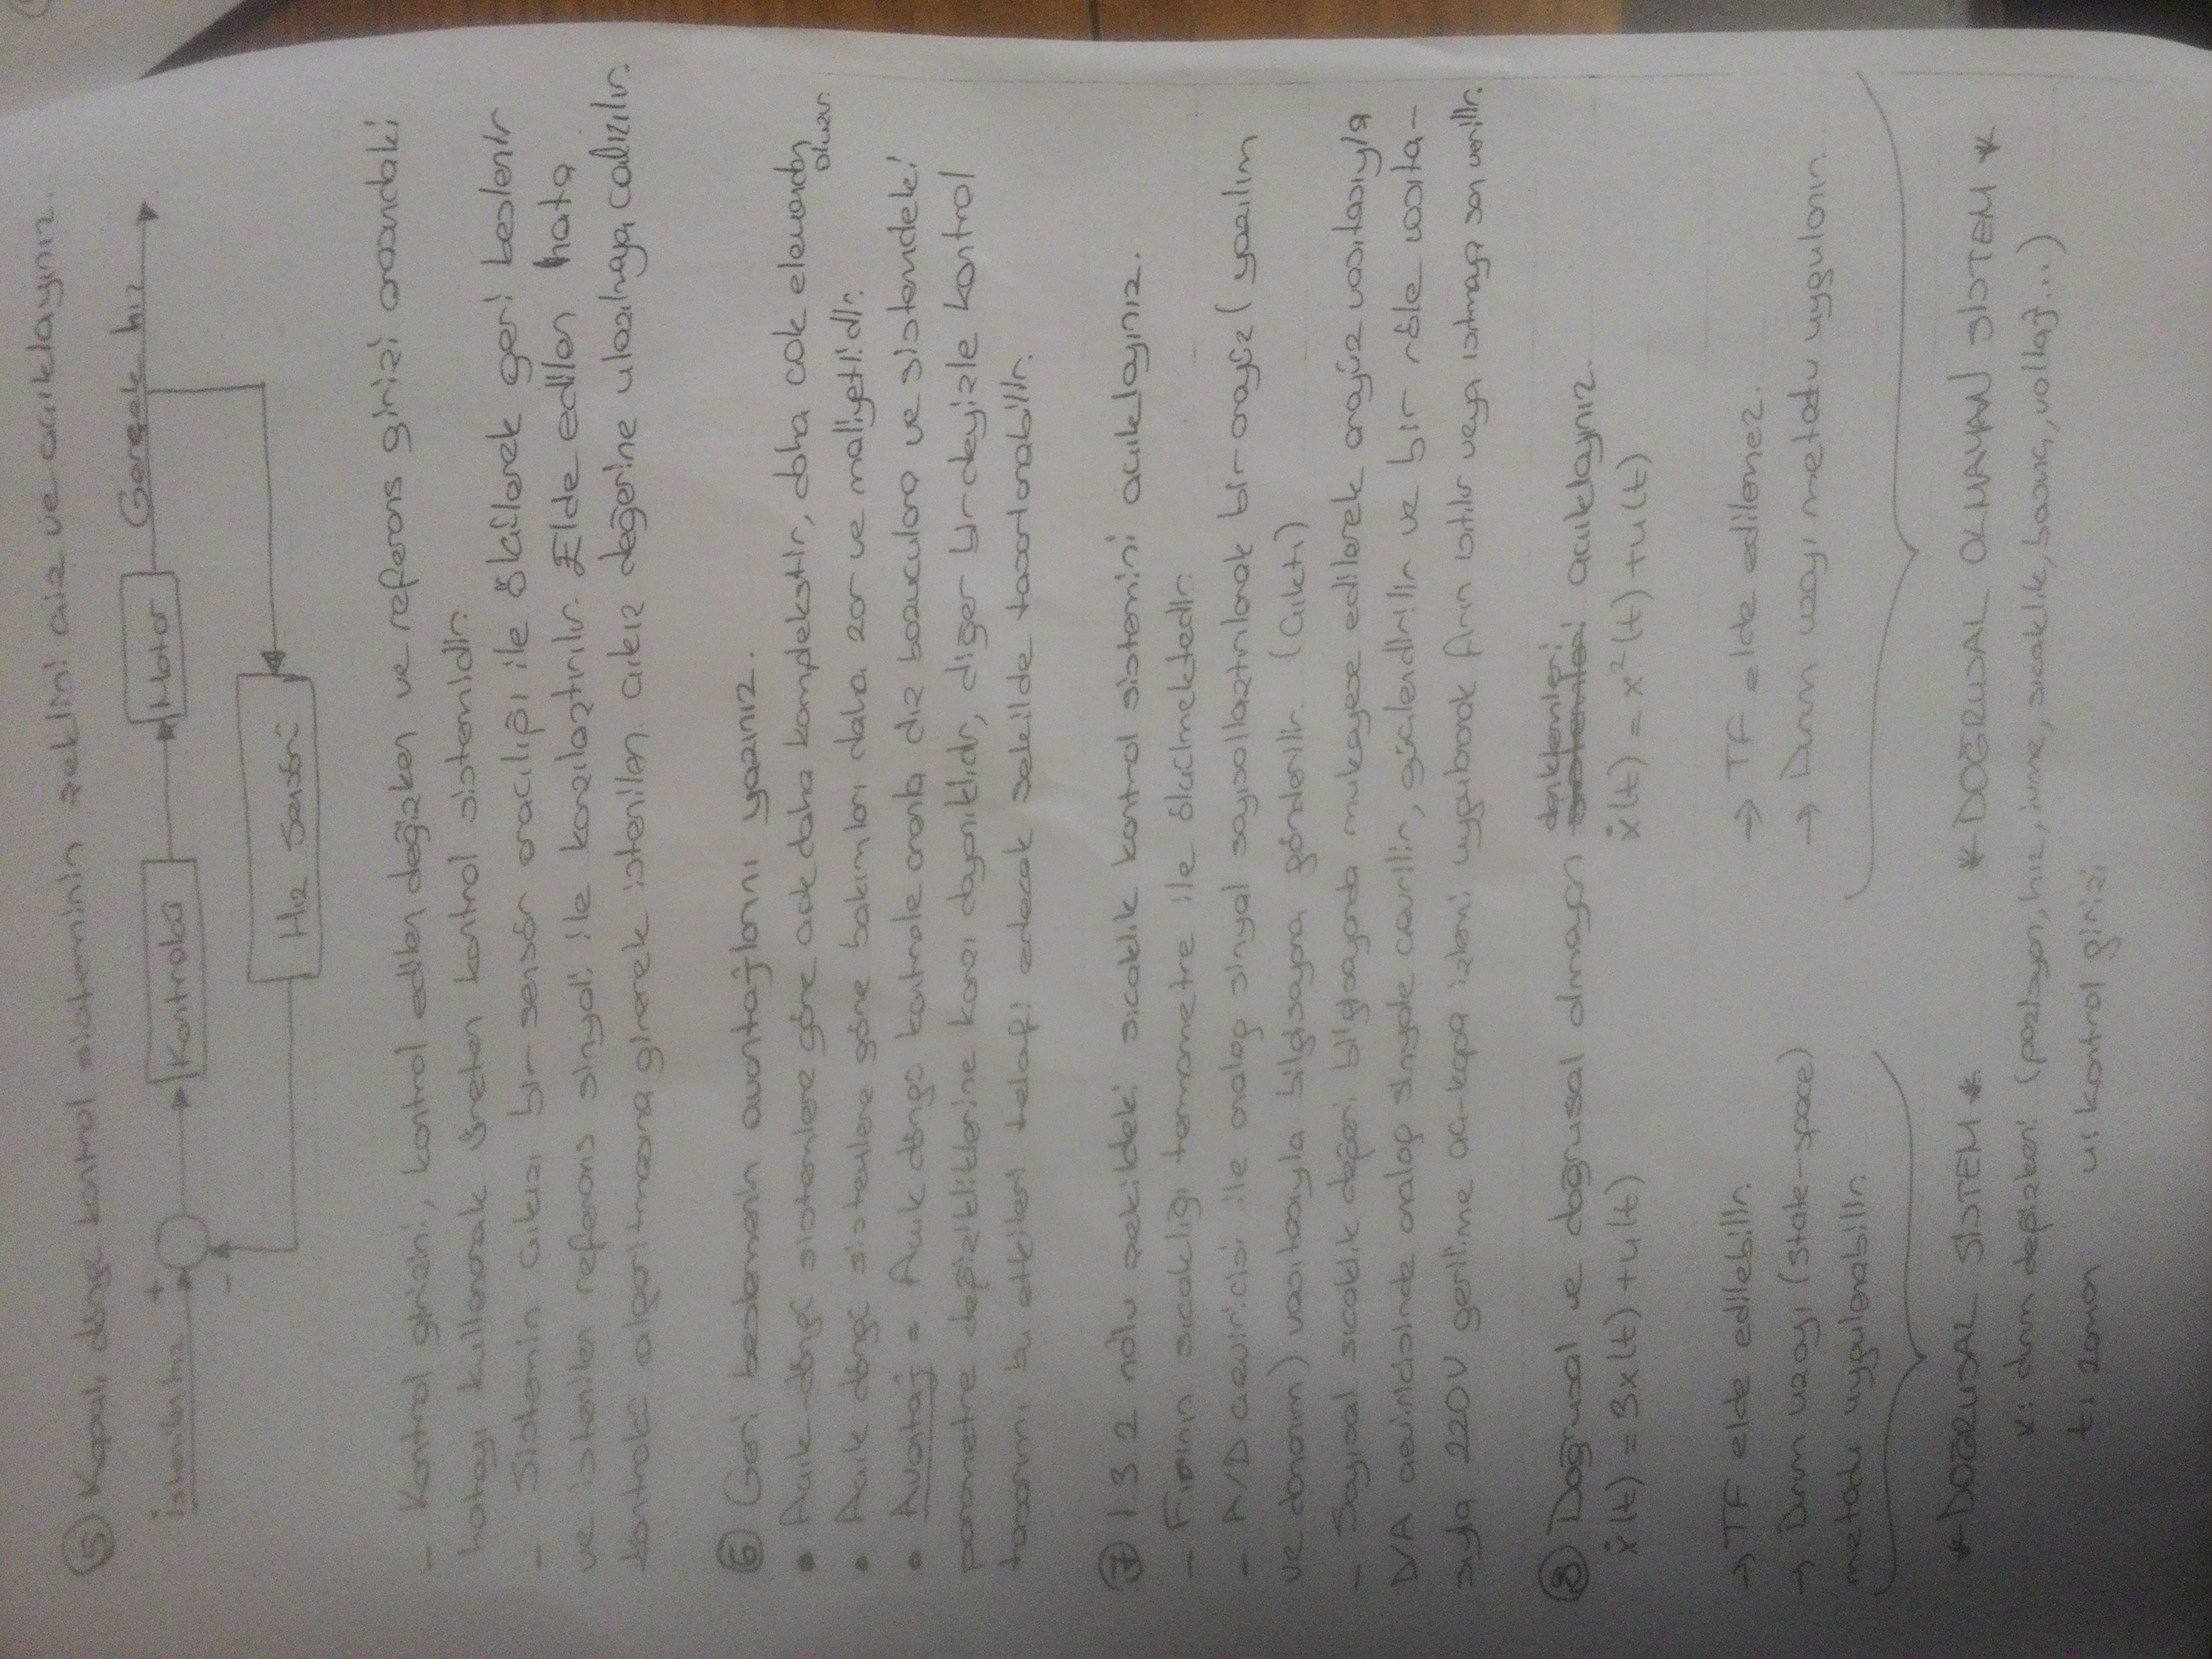 ⑤ Kapalı döngü kontrol sisteminin şeklini çiz ve açıklayınız.
İstenilen hız + Kontrolcü Motor Gerçek hız
-
Hız Sensörü
- Kontrol girişini, kontrol edilen değişken ve referans girişi arasındaki
hatayı kullanarak üreten kontrol sistemidir.
- Sistemin çıkışı bir sensör aracılığı ile ölçülerek geri beslenir
ve istenilen referans sinyali ile karşılaştırılır. Elde edilen hata
kontrolcü algoritmasına girerek istenilen çıkış değerine ulaşılmaya çalışılır.
⑥ Geri beslemenin avantajlarını yazınız.
• Açık-döngü sistemlere göre çok daha komplekstir, daha çok elemandan
oluşur.
• Açık döngü sistemlere göre bakımları daha zor ve maliyetlidir.
• Avantaj = Açık döngü kontrole oranla dış bozuculara ve sistemdeki
parametre değişikliklerine karşı dayanıklıdır, diğer bir deyişle kontrol
tasarımı bu etkileri telafi edecek şekilde tasarlanabilir.
⑦ 1.3.2 nolu şekildeki sıcaklık kontrol sistemini açıklayınız.
- Fırının sıcaklığı termometre ile ölçülmektedir.
- A/D çeviricisi ile analog sinyal sayısallaştırılarak bir arayüz (yazılım
ve donanım) vasıtasıyla bilgisayara gönderilir. (Çıktı)
- Sayısal sıcaklık değeri bilgisayarda mukayese edilerek arayüz vasıtasıyla
D/A çeviricisinde analog sinyale çevrilir, güçlendirilir ve bir röle vasıta-
sıyla 220V gerilime aç-kapa işlemi uygulanarak fırın ısıtılır veya ısıtmaya son verilir.
denklemleri
⑧ Doğrusal ve doğrusal olmayan sistemleri açıklayınız.
ẋ(t) = 3x(t) + u(t) ẋ(t) = x²(t) + u(t)
→ TF elde edilebilir. → TF elde edilemez.
→ Durum uzayı (state-space) → Durum uzayı metodu uygulanır.
metodu uygulanabilir.
* DOĞRUSAL SİSTEM * * DOĞRUSAL OLMAYAN SİSTEM *
x: durum değişkeni (pozisyon, hız, ivme, sıcaklık, basınç, voltaj...)
t: zaman u: kontrol girişi